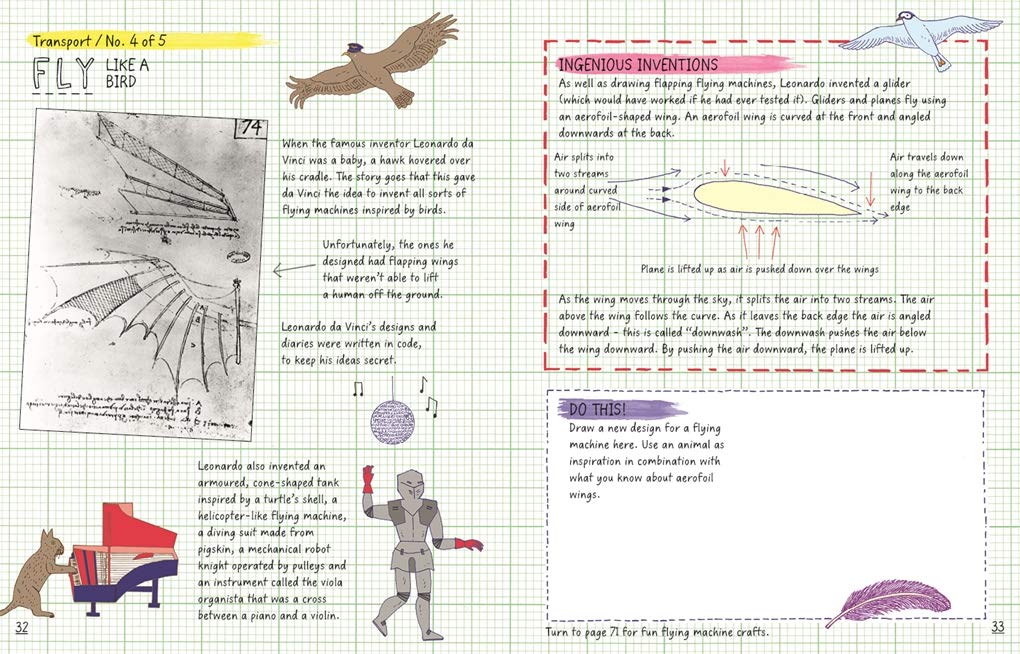 Transport / No. 4 of 5
FLY LIKE A
BIRD
74
When the famous inventor Leonardo da
Vinci was a baby, a hawk hovered over
his cradle. The story goes that this gave
da Vinci the idea to invent all sorts of
flying machines inspired by birds.
Unfortunately, the ones he
designed had flapping wings
that weren't able to lift
a human off the ground.
Leonardo da Vinci's designs and
diaries were written in code,
to keep his ideas secret.
Leonardo also invented an
armoured, cone-shaped tank
inspired by a turtle's shell, a
helicopter-like flying machine,
a diving suit made from
pigskin, a mechanical robot
knight operated by pulleys and
an instrument called the viola
organista that was a cross
between a piano and a violin.
32
INGENIOUS INVENTIONS
As well as drawing flapping flying machines, Leonardo invented a glider
(which would have worked if he had ever tested it). Gliders and planes fly using
an aerofoil-shaped wing. An aerofoil wing is curved at the front and angled
downwards at the back.
Air splits into
two streams
around curved
side of aerofoil
wing
Air travels down
along the aerofoil
wing to the back
edge
Plane is lifted up as air is pushed down over the wings
As the wing moves through the sky, it splits the air into two streams. The air
above the wing follows the curve. As it leaves the back edge the air is angled
downward - this is called "downwash". The downwash pushes the air below
the wing downward. By pushing the air downward, the plane is lifted up.
DO THIS!
Draw a new design for a flying
machine here. Use an animal as
inspiration in combination with
what you know about aerofoil
wings.
Turn to page 71 for fun flying machine crafts.
33